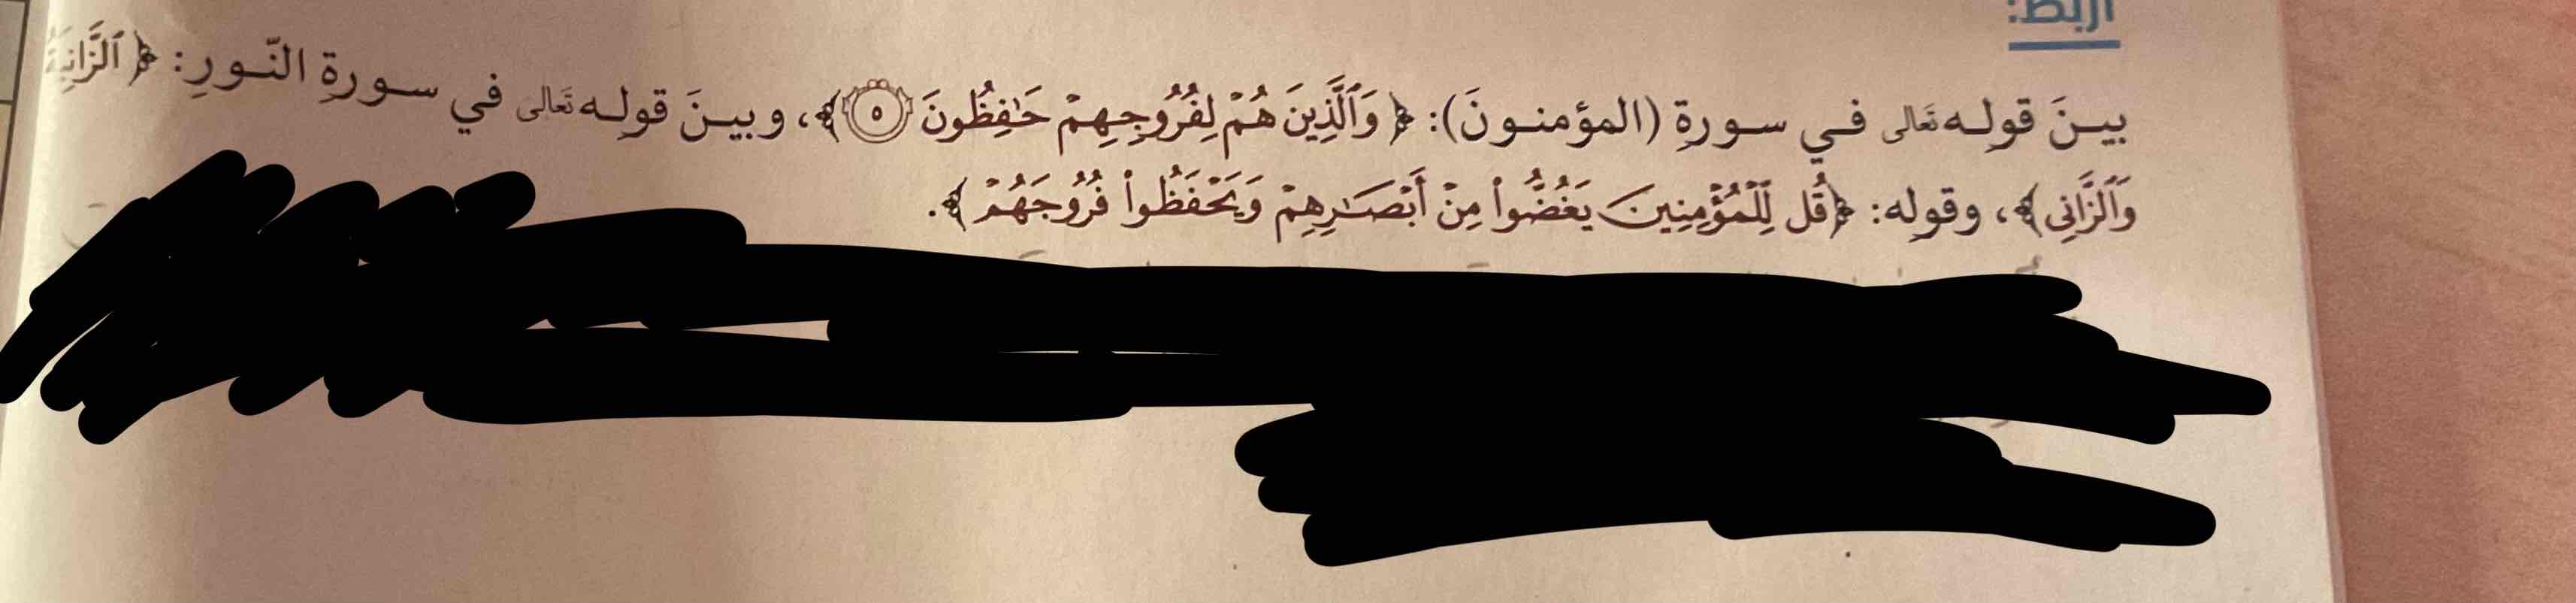 اربط:
بينَ قولـه تَعَالى فـي سـورةِ (المؤمنـونَ): ﴿وَٱلَّذِينَ هُمۡ لِفُرُوجِهِمۡ حَٰفِظُونَ ٥﴾، وبيـنَ قولـه تَعَالى في سـورةِ النّـورِ: ﴿ٱلزَّانِيَةُ
وَٱلزَّانِي﴾، وقوله: ﴿قُل لِّلۡمُؤۡمِنِينَ يَغُضُّواْ مِنۡ أَبۡصَٰرِهِمۡ وَيَحۡفَظُواْ فُرُوجَهُمۡ﴾.